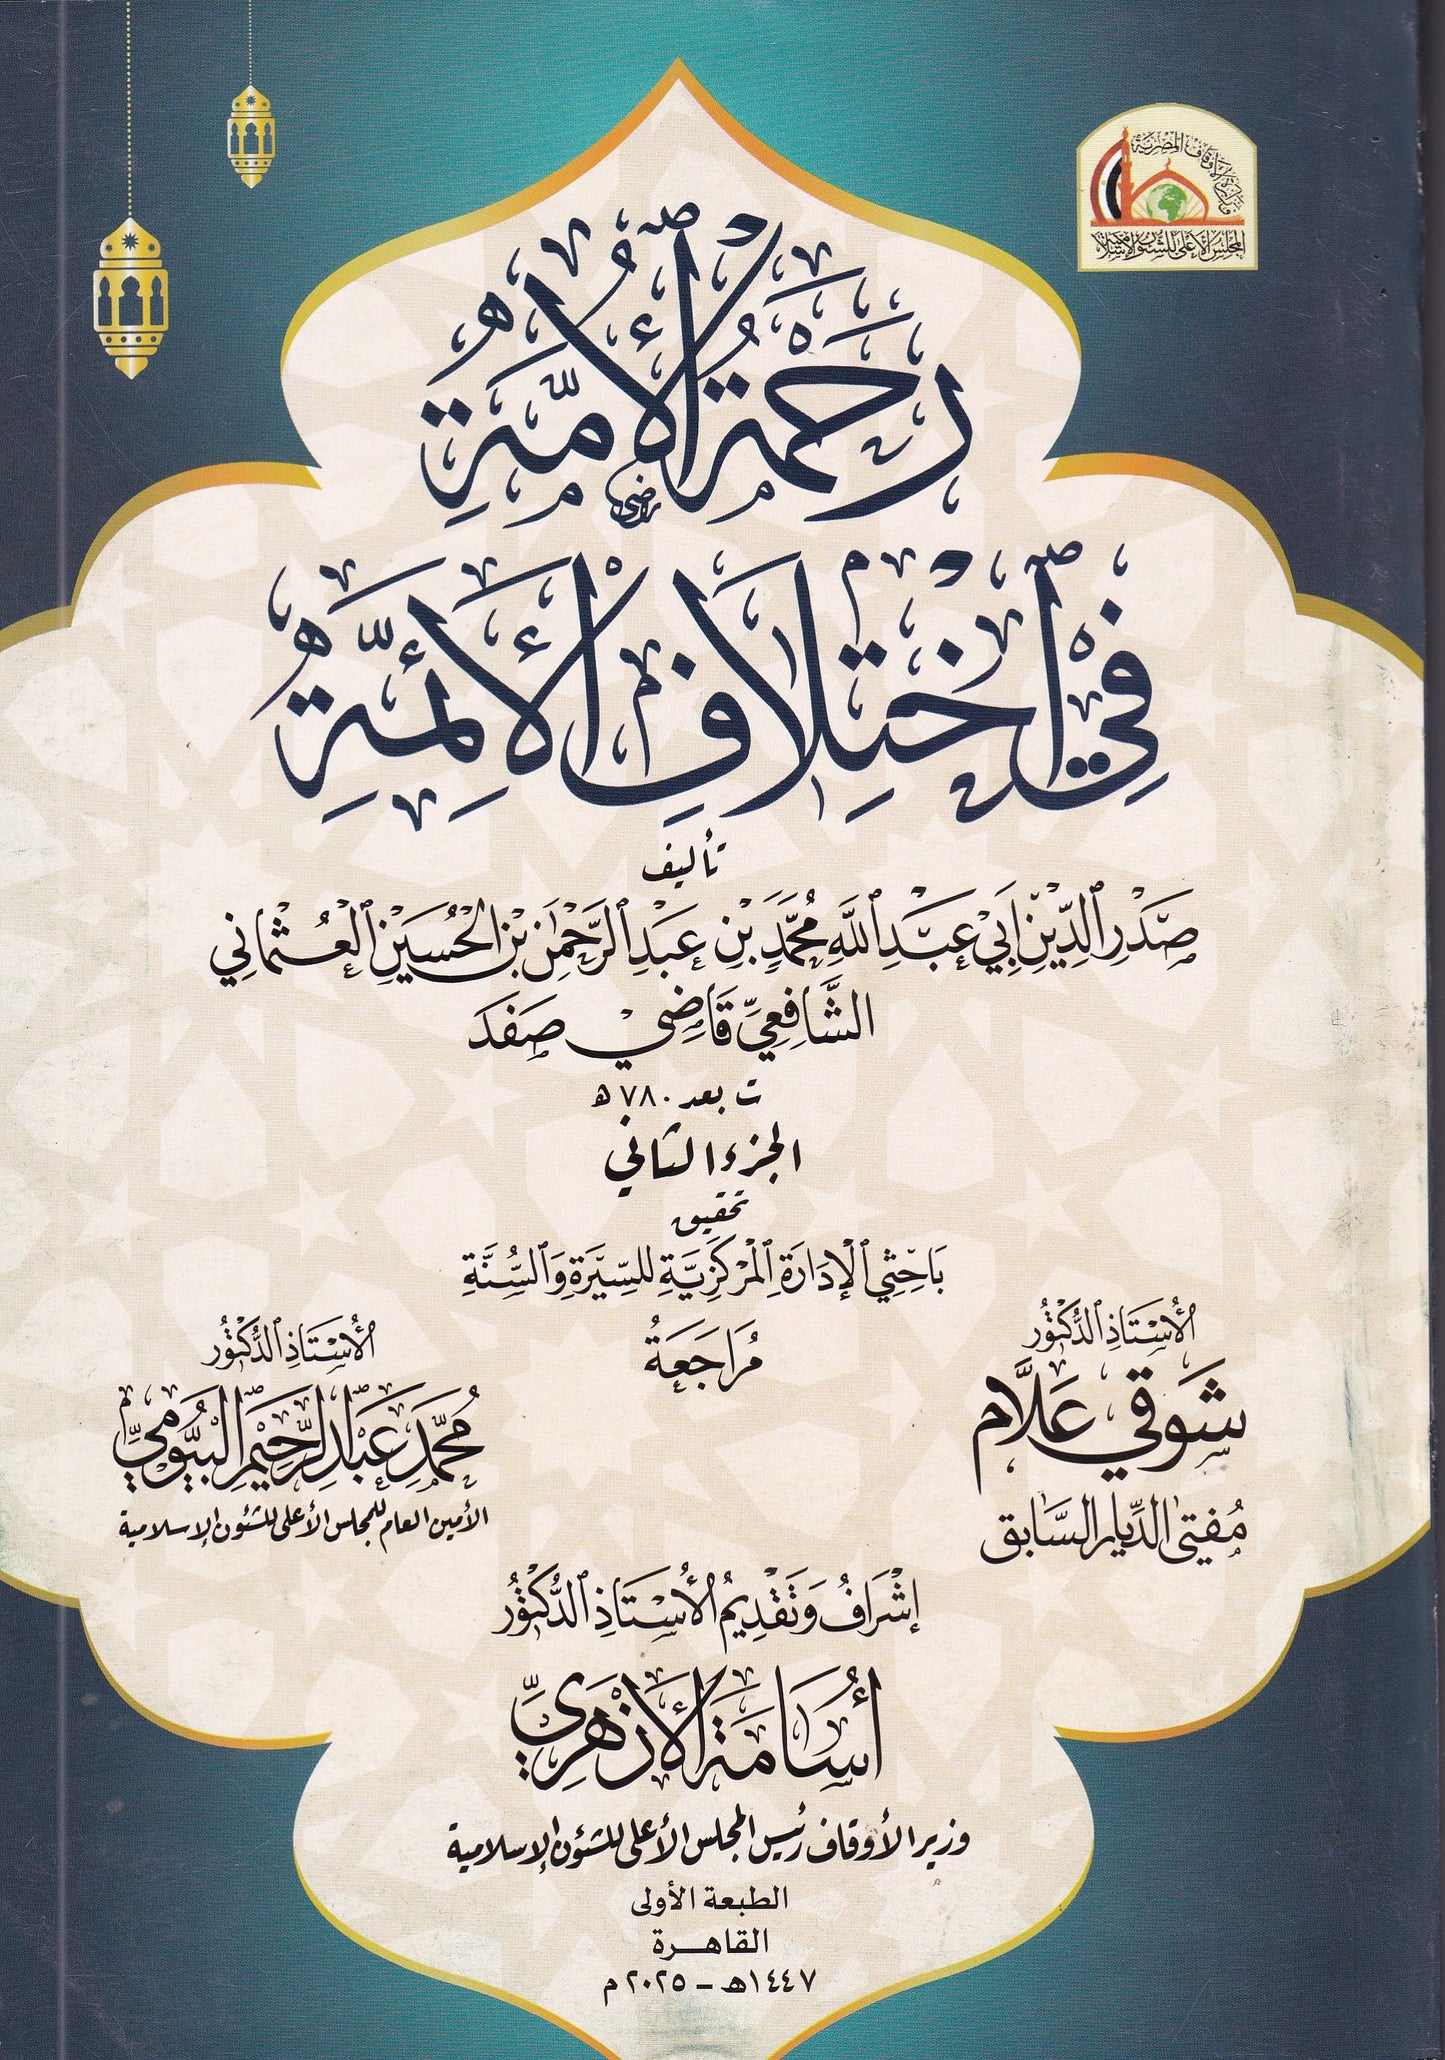 وزارة الأوقاف المصرية
المجلس الأعلى للشئون الإسلامية
رَحْمَةُ الْأُمَّةِ
فِي اخْتِلَافِ الْأَئِمَّةِ
تأليف
صَدْرِ الدِّيْنِ أَبِي عَبْدِ اللَّهِ مُحَمَّدِ بْنِ عَبْدِ الرَّحْمٰنِ بْنِ الْحُسَيْنِ الْعُثْمَانِي
الشَّافِعِيِّ قَاضِي صَفَدَ
ت بعد ٧٨٠ هـ
الجزء الثاني
تحقيق
بَاحِثِي الْإِدَارَةِ الْمَرْكَزِيَّةِ لِلسِّيْرَةِ وَالسُّنَّةِ
مُرَاجَعَةُ
الْأُسْتَاذِ الدُّكْتُورِ
شَوْقِي عَلَّام
مُفتي الدِّيار السَّابق
الْأُسْتَاذِ الدُّكْتُورِ
مُحَمَّد عَبْد الرَّحِيْم الْبَيُّومِيّ
الأمين العام للمجلس الأعلى للشئون الإسلامية
إِشْرَافُ وَتَقْدِيمُ الْأُسْتَاذِ الدُّكْتُورِ
أُسَامَة الْأَزْهَرِيّ
وزير الأوقاف رئيس المجلس الأعلى للشئون الإسلامية
الطبعة الأولى
القاهـــرة
١٤٤٧هـ – ٢٠٢٥ م